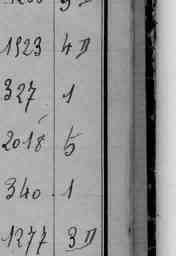 1923 4 D
327 1
2018 5
340 1
1277 3 D